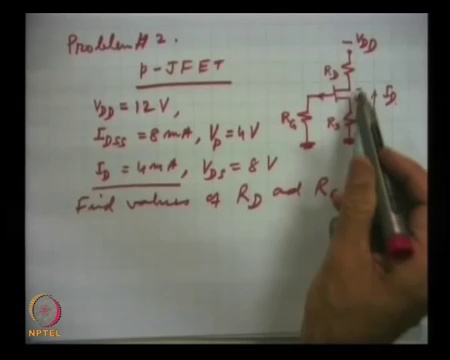 Problem # 2.
p-JFET
V_DD = 12 V,
I_DSS = 8 mA, V_p = 4 V
I_D = 4 mA, V_DS = 8 V
Find values of R_D and R_S
-V_DD
R_D
I_D
R_G
R_S
NPTEL